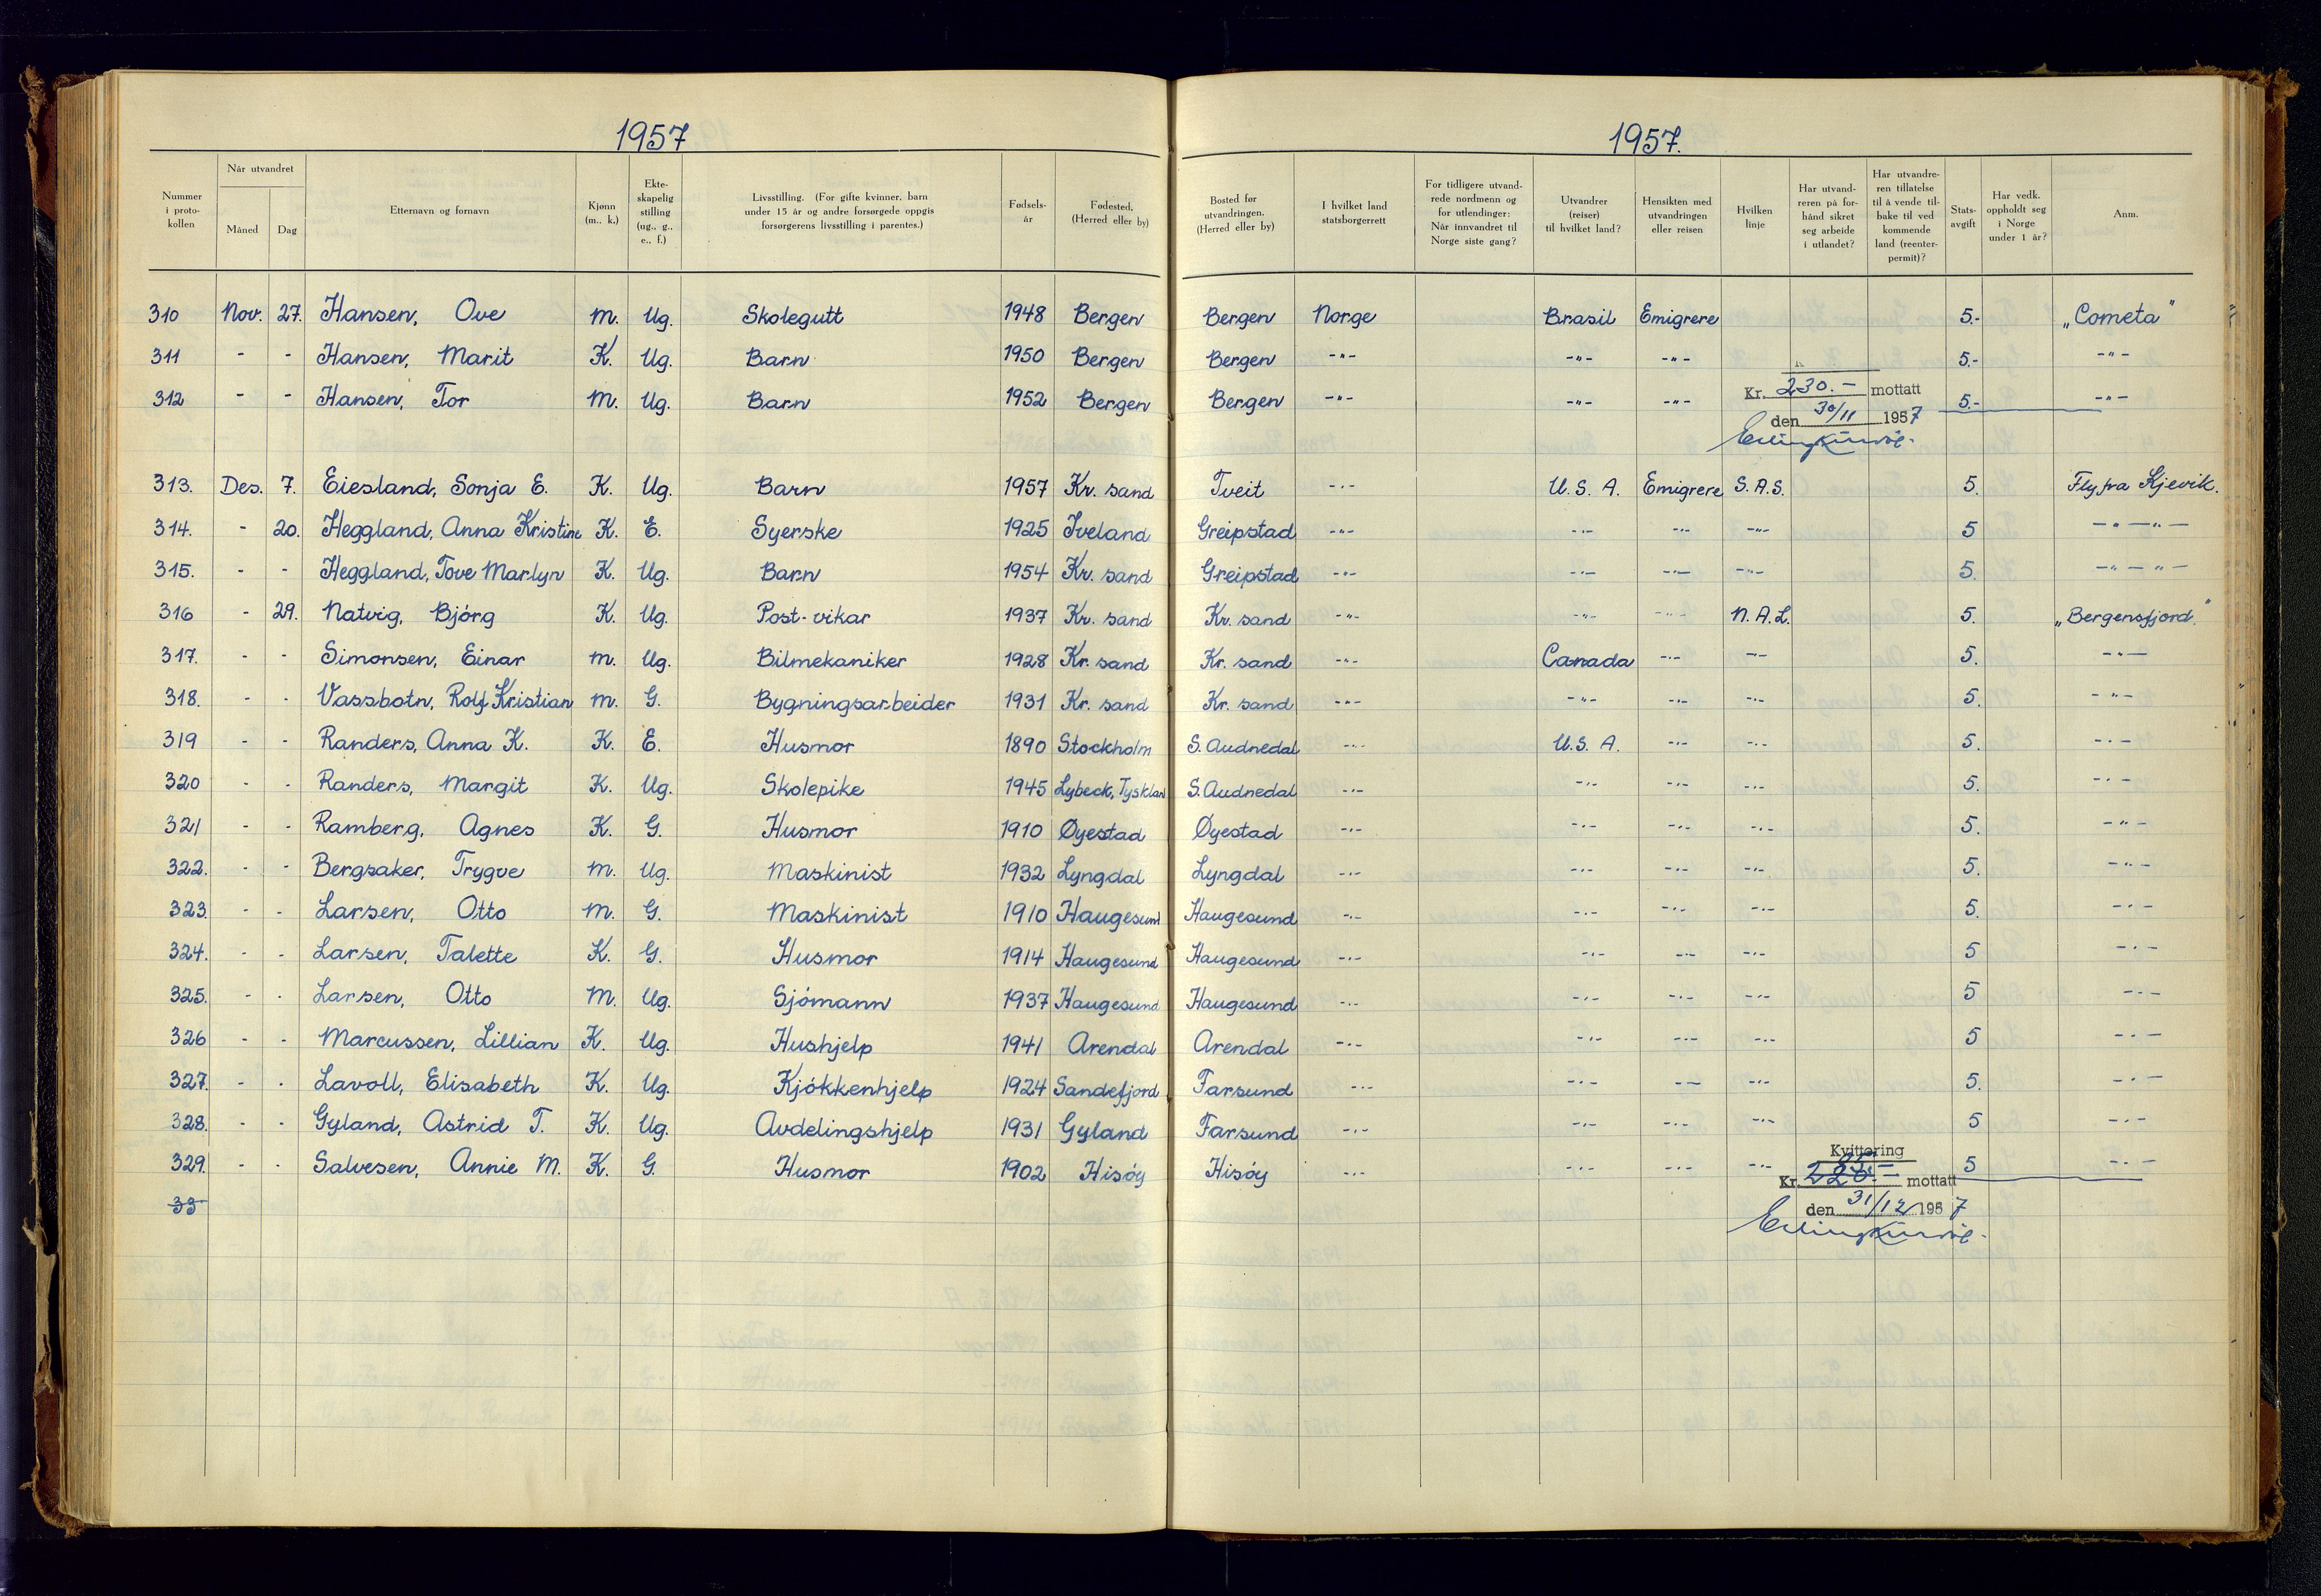 1957
1957.
Nummer i proto-kollen | Når utvandret Måned | Dag | Etternavn og fornavn | Kjønn (m., k.) | Ekte-skapelig stilling (ug., g., e., f.) | Livsstilling. (For gifte kvinner, barn under 15 år og andre forsørgede oppgis forsørgerens livsstilling i parentes.) | Fødsels-år | Fødested. (Herred eller by) | Bosted før utvandringen. (Herred eller by) | I hvilket land statsborgerrett | For tidligere utvand-rede nordmenn og for utlendinger: Når innvandret til Norge siste gang? | Utvandrer (reiser) til hvilket land? | Hensikten med utvandringen eller reisen | Hvilken linje | Har utvand-reren på for-hånd sikret seg arbeide i utlandet? | Har utvandre-ren tillatelse til å vende til-bake til ved kommende land (reenter-permit)? | Stats-avgift | Har vedk. oppholdt seg i Norge under 1 år? | Anm.
310 Nov. 27. Hansen, Ove m. Ug. Skolegutt 1948 Bergen Bergen Norge Brasil Emigrere 5.- „Cometa"
311 - - Hansen, Marit K. Ug. Barn 1950 Bergen Bergen -"- -"- -"- 5.- -"-
312 - - Hansen, Tor M. Ug. Barn 1952 Bergen Bergen -"- -"- -"- 5.- -"-
Kr. 230.- mottatt
den 30/11 1957
313. Des. 7. Eiesland, Sonja E. K. Ug. Barn 1957 Kr. sand Tveit -"- U. S. A. Emigrere S.A.S. 5. Fly fra Kjevik.
314. - 20. Heggland, Anna Kristine K. E. Syerske 1925 Iveland Greipstad -"- -"- -"- -"- 5 -"-"-
315. - - Heggland, Tove Marlyn K. Ug. Barn 1954 Kr. sand Greipstad -"- -"- -"- -"- 5. -"-"-
316 - 29. Natvig, Bjórg K. Ug. Post-vikar 1937 Kr. sand Kr. sand -"- -"- -"- N.A.L. 5. „Bergensfjord."
317. - - Simonsen, Einar m. Ug. Bilmekaniker 1928 Kr. sand Kr. sand -"- Canada -"- -"- 5. -"-
318. - - Vassbotn, Rolf Kristian m. G. Bygningsarbeider 1931 Kr. sand Kr. sand -"- -"- -"- -"- 5. -"-
319 - - Randers, Anna K. K. E. Husmor 1890 Stockholm S. Audnedal -"- U.S. A. -"- -"- 5. -"-
320 - - Randers, Margit K. Ug. Skolepike 1945 Lybeck, Tysklan S. Audnedal -"- -"- -"- -"- 5. -"-
321 - - Ramberg, Agnes K. G. Husmor 1910 Øyestad Øyestad -"- -"- -"- -"- 5. -"-
322. - - Bergsaker, Trygve m. Ug. Maskinist 1932 Lyngdal Lyngdal -"- -"- -"- -"- 5. -"-
323. - - Larsen, Otto m. G. Maskinist 1910 Haugesund Haugesund -"- -"- -"- -"- 5. -"-
324. - - Larsen, Talette K. G. Husmor 1914 Haugesund Haugesund -"- -"- -"- -"- 5 -"-
325. - - Larsen, Otto M. Ug. Sjómann 1937 Haugesund Haugesund -"- -"- -"- -"- 5 -"-
326 - - Marcussen, Lillian K. Ug. Hushjelp 1941 Arendal Arendal -"- -"- -"- -"- 5 -"-
327. - - Lavoll, Elisabeth K. Ug. Kjókkenhjelp 1924 Sandefjord Farsund -"- -"- -"- -"- 5. -"-
328. - - Gyland, Astrid T. K. Ug. Avdelingshjelp 1931 Gyland Farsund -"- -"- -"- -"- 5 -"-
329. - - Salvesen, Annie M. K. G. Husmor 1902 Hisóy Hisóy -"- -"- -"- -"- 5 -"-
Kvittering
Kr. mottatt
33
den 31/12 1957